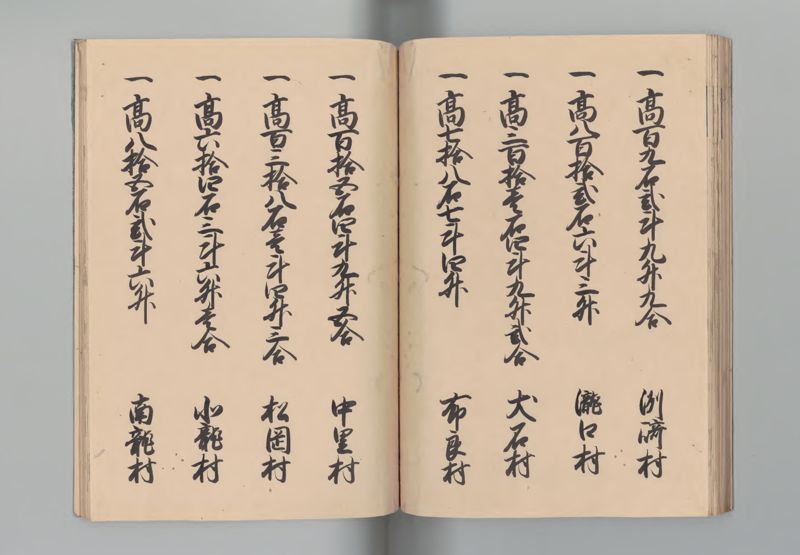 一高百九石弐斗九升九合 洲崎村
一高八百拾弐石六斗三升 瀧口村
一高三百拾壱石四斗九升弐合 犬石村
一高七拾八石七斗四升 布良村
一高百拾五石四斗九升五合 中里村
一高百三拾八石壱斗四升三合 松岡村
一高六拾四石三斗六升壱合 北龍村
一高八拾五石弐斗六升 南龍村